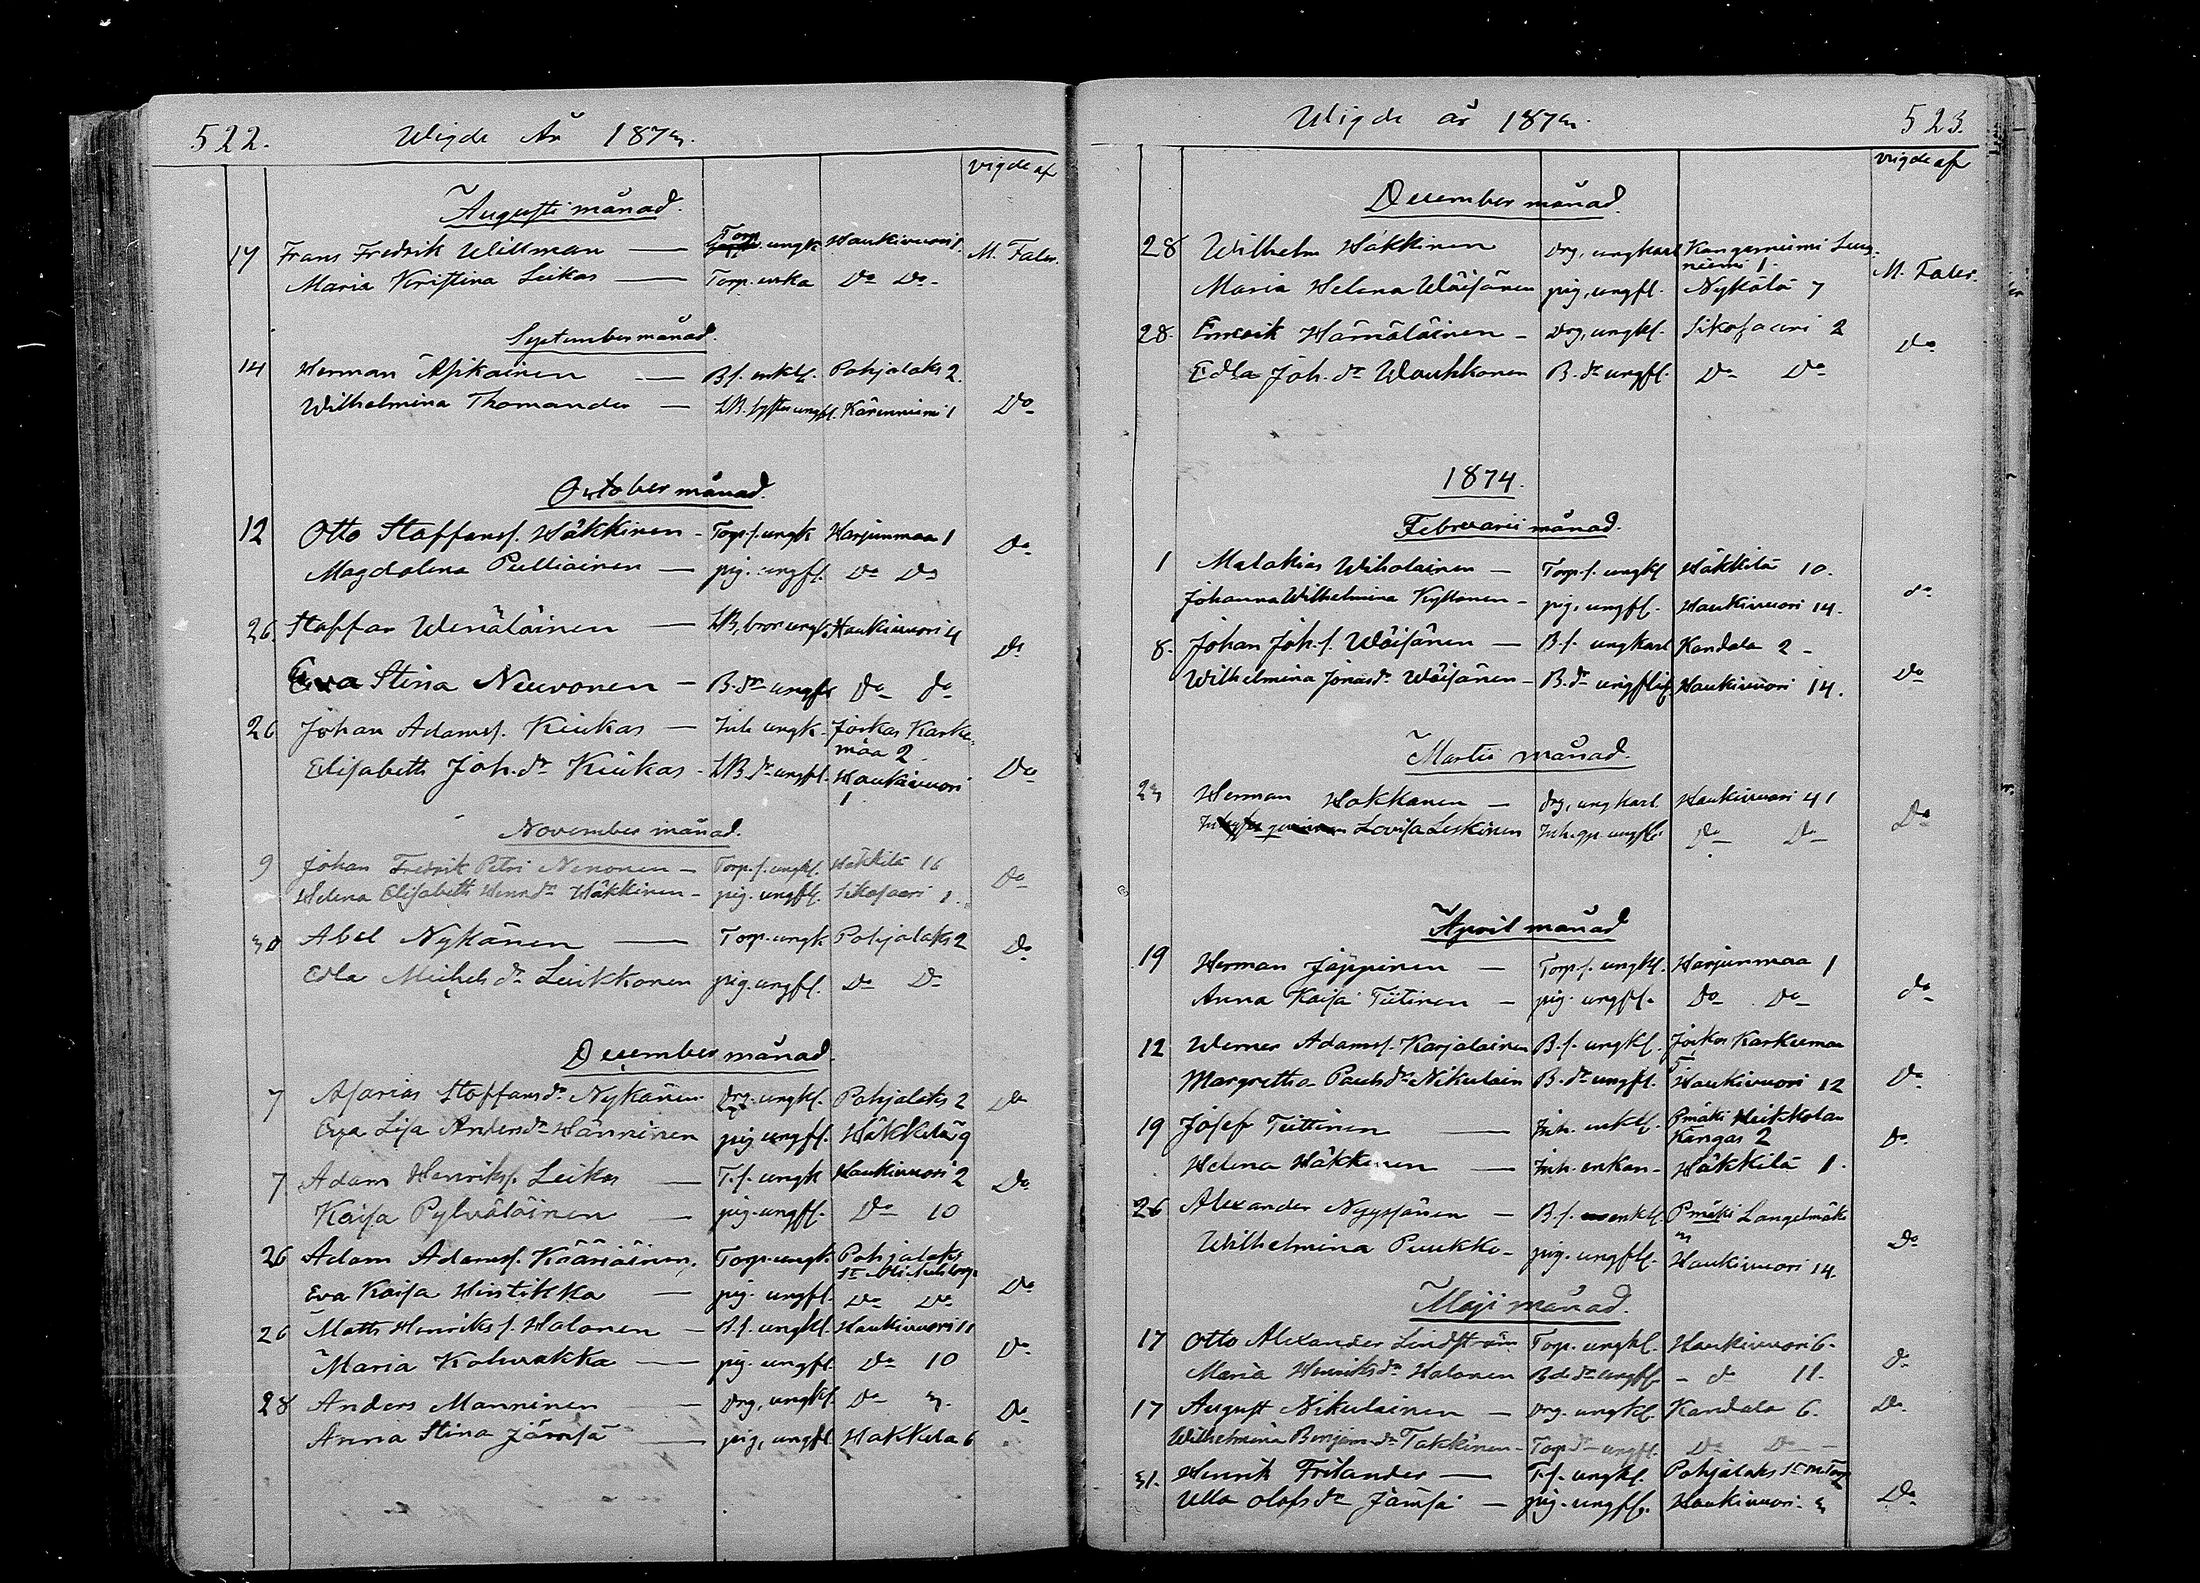 522. Wigde År 1873.
vigde af
Augusti månad.
17 Frans Fredrik Willman — Torp ungk Haukivuori 1. M. Faler.
Maria Kristina Leikas — Torp. enka Do Do
September månad.
14 Herman Asikainen — B.s. enkl. Pohjalaks 2.
Wilhelmina Thomander — LB. syster ungfl. Kärenniemi 1 Do
October månad.
12 Otto Staffanss. Häkkinen - Torp.s. ungk Harjunmaa 1 Do
Magdalena Pulliainen — pig. ungfl. Do Do
26 Staffan Wenäläinen — LB. bror ungk Haukivuori 4 Do
Eva Stina Neuvonen — B.dr ungfl Do do
26 Johan Adamss. Kiukas — Inh ungk. Joikas Karkea-
maa 2.
Elisabeth Joh.dr Kiukas - LB.dr ungfl. Haukivuori Do
1.
November månad.
9 Johan Fredrik Petri Nenonen — Torp.s. ungkl. Häkkilä 16 Do
Helena Elisabeth Henr.dr Häkkinen - pig. ungfl. Sikosaari 1.
30 Abel Nykänen — Torp. ungk Pohjalaks 2 Do
Edla Michelsdr Leikkonen pig. ungfl. Do Do
December månad.
7 Asarias Staffansdr Nykänen Drg. ungkl. Pohjalaks 2 Do
Eva Lisa Andersdr Hänninen pig ungfl. Häkkilä 9
7. Adam Henrikss. Leikas — T.s. ungk Haukivuori 2 Do
Kaisa Pylväläinen — pig. ungfl. Do 10
26 Adam Adamss. Kääriäinen. Torp. ungk. Pohjalaks
St Michels
Eva Kaisa Hintikka — pig. ungfl. Do Do Do
26 Matts Henriks s. Halonen — B.s. ungkl. Haukivuori 11 Do
Maria Kohvakka — pig. ungfl. Do 10
28 Anders Manninen — Drg, ungkl. Do 3. Do
Anna Stina Jämsä — pig, ungfl Häkkilä 6
Wigde år 1873. 523.
vigde af
December månad.
28 Wilhelm Häkkinen Drg, ungkarl Kangasniemi
niemi 1. M. Faler.
Maria Helena Wäisänen pig, ungfl. Nykälä 7
28. Henrik Hämäläinen - Drg, ungkl. Sikosaari 2 Do
Edla Joh. dr Waukkonen B.dr ungfl. Do Do
1874.
Februarii månad.
1 Malakias Wiholainen — Torp.s. ungkl Häkkilä 10. do
Johanna Wilhelmina Kyllönen - pig, ungfl. Haukivuori 14.
8. Johan Joh.s. Wäisänen — B.s. ungkarl Kandala 2 - Do
Wilhelmina Jonasdr Wäisänen - B.dr ungflic. Haukivuori 14.
Martii månad.
23 Herman Hokkanen — Drg, ungkarl Haukivuori 41 Do
Lovisa Leskinen Inh.gp. ungfl. Do Do
April månad
19 Herman Jäppinen — Torp.s. ungkl. Harjunmaa 1 do
Anna Kaisa Tiitinen — pig. ungfl. Do Do
12 Werner Adamss. Karjalainen B.s. ungkl. Joikas Karkiamaa
5
Margretha Paulsdr Nikulain B.dr ungfl. Haukivuori 12 Do
19 Josef Tiittinen — Inh. enkl. Pmäki Heikkolan
Kangas 2 Do
Helena Häkkinen — Inh. enkan - Häkkilä 1.
26 Alexander Nyyssönen — B.s. enkl Pmäki Längelmäki
3 Do
Wilhelmina Puukko - pig. ungfl. Haukivuori 14.
Maji månad.
17 Otto Alexander Lindström Torp. ungkl. Haukivuori 6. Do
Maria Henriksdr Halonen Bdedr ungfl - do 11.
17 August Nikulainen — Drg. ungkl. Kandala 6. Do
Wilhelmina Benjam.dr Takkinen - Torp dr ungfl. Do Do -
31. Henrik Frilander — T.s. ungkl. Pohjalaks St M. Torp
2
Ulla Olofsdr Jämsä — pig. ungfl. Haukivuori 3 Do